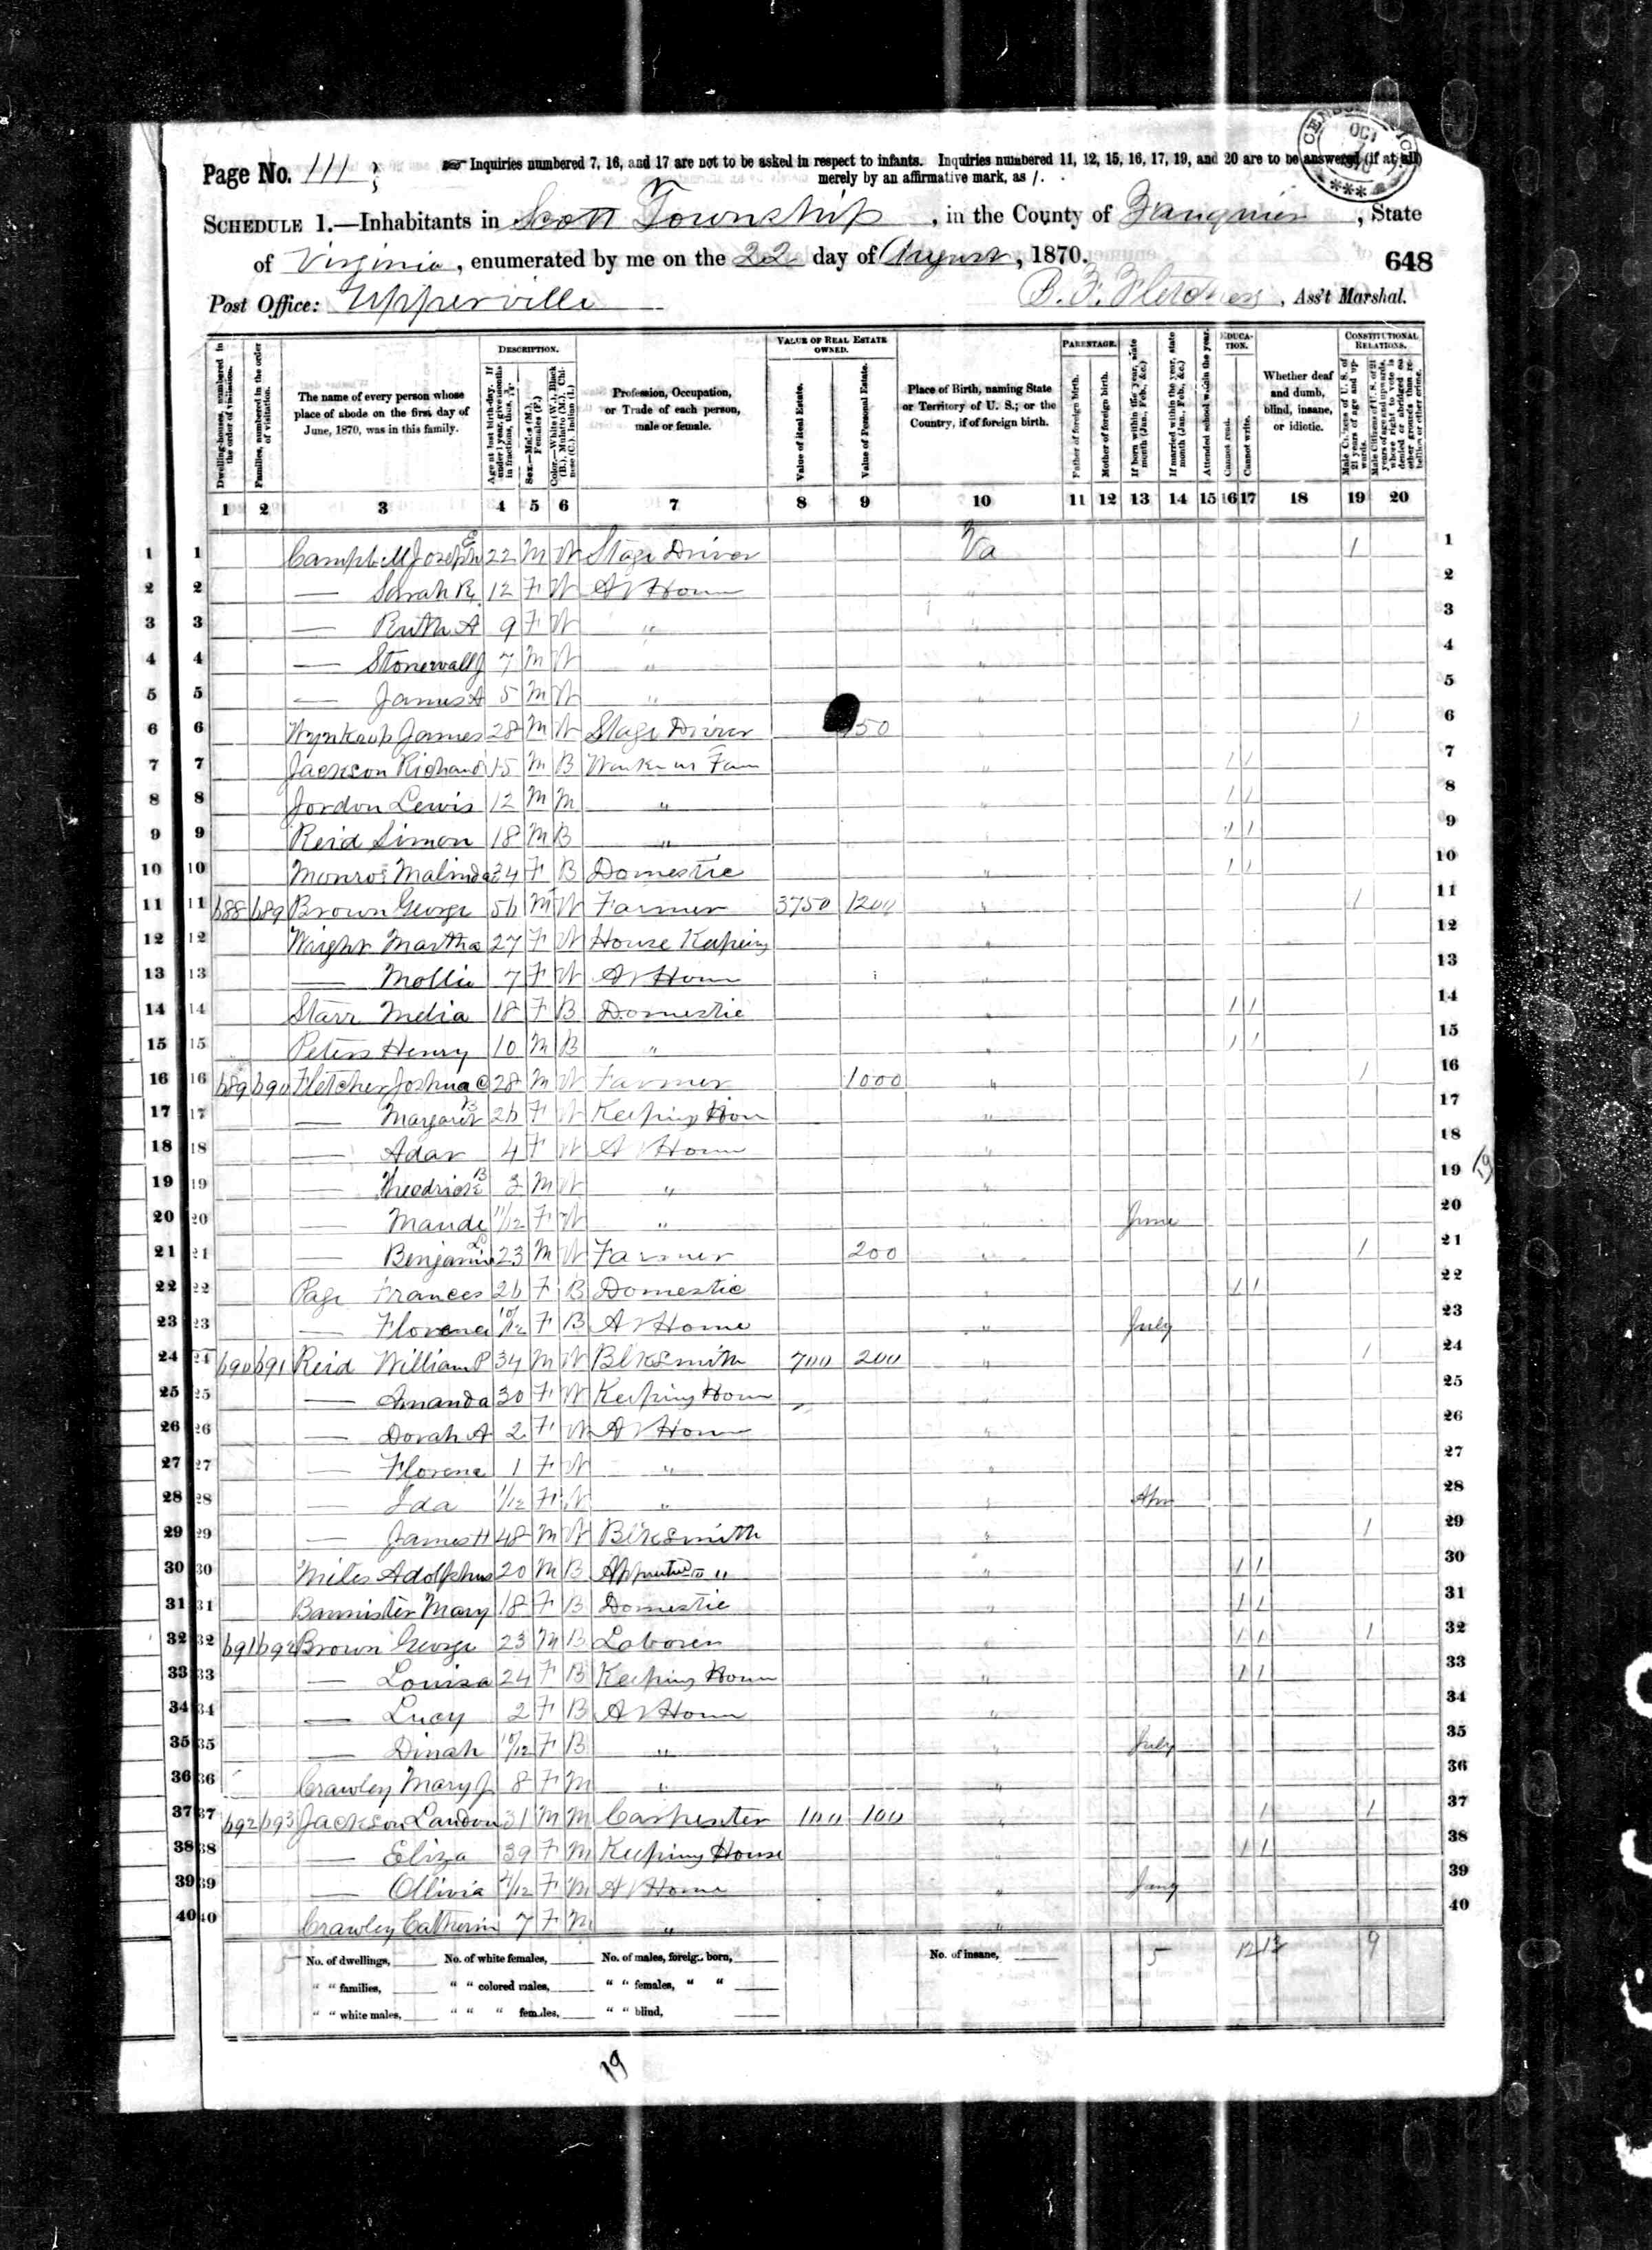 Page No. 111
Inquiries numbered 7, 16, and 17 are not to be asked in respect to infants. Inquiries numbered 11, 12, 15, 16, 17, 19, and 20 are to be answered (if at all)
merely by an affirmative mark, as /.
SCHEDULE 1.—Inhabitants in Scott Township, in the County of Fauquier, State
of Virginia, enumerated by me on the 22 day of August, 1870.
648
Post Office: Upperville
B. F. Fletcher, Ass't Marshal.
Dwelling-houses, numbered in the order of visitation.
Families, numbered in the order of visitation.
The name of every person whose place of abode on the first day of June, 1870, was in this family.
DESCRIPTION.
Age at last birth-day. If under 1 year, give months in fractions, thus, 3/12
Sex.—Males (M.), Females (F.)
Color.—White (W.), Black (B.), Mulatto (M.), Chinese (C.), Indian (I.)
Profession, Occupation, or Trade of each person, male or female.
VALUE OF REAL ESTATE OWNED.
Value of Real Estate.
Value of Personal Estate.
Place of Birth, naming State or Territory of U. S.; or the Country, if of foreign birth.
PARENTAGE.
Father of foreign birth.
Mother of foreign birth.
If born within the year, state month (Jan., Feb., &c.)
If married within the year, state month (Jan., Feb., &c.)
Attended school within the year.
EDUCATION.
Cannot read.
Cannot write.
Whether deaf and dumb, blind, insane, or idiotic.
CONSTITUTIONAL RELATIONS.
Male Citizens of U. S. of 21 years of age and upwards.
Male Citizens of U. S. of 21 years of age and upwards, whose right to vote is denied or abridged on other grounds than rebellion or other crime.
1 2 3 4 5 6 7 8 9 10 11 12 13 14 15 16 17 18 19 20
1 1 Campbell Joseph E 22 M W Stage Driver Va 1 1
2 2 — Sarah R. 12 F W At Home " 2
3 3 — Ruth A 9 F W " " 3
4 4 — Stonewall J 7 M W " " 4
5 5 — James A 5 M W " " 5
6 6 Wynkoop James 28 M W Stage Driver 150 " 1 6
7 7 Jackson Richard 15 M B Works on Farm " 1 1 7
8 8 Jordon Lewis 12 M M " " 1 1 8
9 9 Reid Simon 18 M B " " 1 1 9
10 10 Monroe Malinda 34 F B Domestic " 1 1 10
11 11 688 689 Brown George 56 M W Farmer 3750 1200 " 1 11
12 12 Wright Martha 27 F W House Keeping " 12
13 13 — Mollie 7 F W At Home " 13
14 14 Starr Melia 18 F B Domestic " 1 1 14
15 15 Peters Henry 10 M B " " 1 1 15
16 16 689 690 Fletcher Joshua C 28 M W Farmer 1000 " 1 16
17 17 — Margaret B 26 F W Keeping Hou " 17
18 18 — Adar 4 F W At Home " 18
19 19 — Theodrick B 3 M W " " 19
20 20 — Maude 11/12 F W " " June 20
21 21 — Benjamin L 23 M W Farmer 200 " 1 21
22 22 Page Frances 26 F B Domestic " 1 1 22
23 23 — Florence 10/12 F B At Home " July 23
24 24 690 691 Reid William P 34 M W Blksmith 700 200 " 1 24
25 25 — Amanda 30 F W Keeping Hous " 25
26 26 — Dorah A 2 F W At Home " 26
27 27 — Florence 1 F W " " 27
28 28 — Ida 1/12 F W " " Apr 28
29 29 — James H 48 M W Blksmith " 1 29
30 30 Miles Adolphus 20 M B Apprentice to " " 1 1 30
31 31 Bannister Mary 18 F B Domestic " 1 1 31
32 32 691 692 Brown George 23 M B Laborer " 1 1 1 32
33 33 — Louisa 24 F B Keeping House " 1 1 33
34 34 — Lucy 2 F B At Home " 34
35 35 — Dinah 10/12 F B " " July 35
36 36 Crawley Mary J. 8 F M " " 36
37 37 692 693 Jackson Landon 31 M M Carpenter 100 100 " 1 1 37
38 38 — Eliza 39 F M Keeping House " 1 1 38
39 39 — Ollivia /12 F M At Home " Jany 39
40 40 Crawley Catherin 7 F M " " 40
5 No. of dwellings, No. of white females, No. of males, foreign born, No. of insane, 5 12 13 9
" " families, " " colored males, " " females, " "
" " white males, " " " females, " " blind,
19